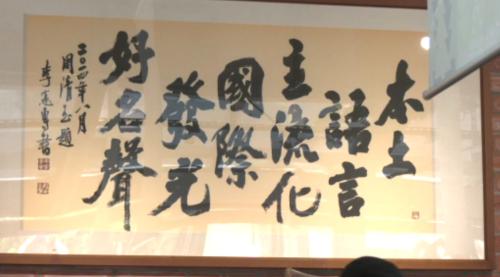 本土
語言
主流化
國際
發光
好名聲
二〇一四年八月
周清玉題